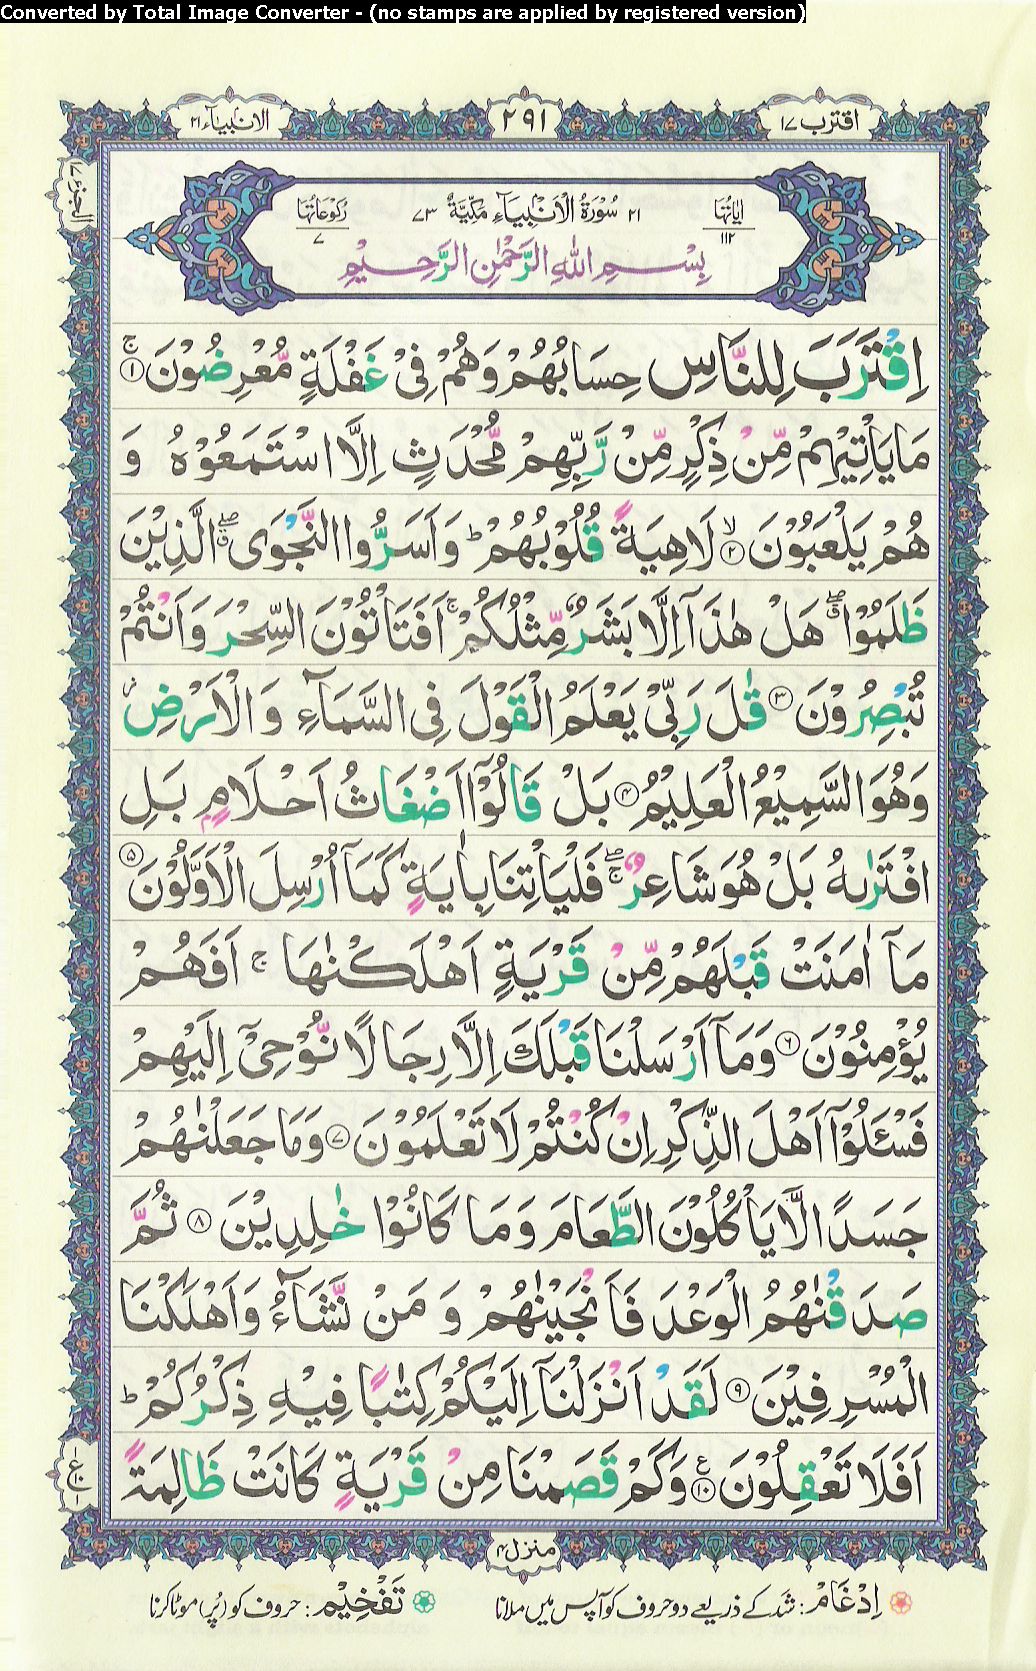 Converted by Total Image Converter - (no stamps are applied by registered version)
اقترب ١٧
٢٩١
الانبیآء ٢١
الجزء ١٧
اٰیَاتُهَا ١١٢
٢١ سُوْرَةُ الْاَنْۢبِیَآءِ مَكِّیَّةٌ ٧٣
رُكُوْعَاتُهَا ٧
بِسْمِ اللّٰهِ الرَّحْمٰنِ الرَّحِیْمِ
اِقْتَرَبَ لِلنَّاسِ حِسَابُهُمْ وَهُمْ فِیْ غَفْلَةٍ مُّعْرِضُوْنَ ۚ﴿١﴾
مَا یَاْتِیْهِمْ مِّنْ ذِكْرٍ مِّنْ رَّبِّهِمْ مُّحْدَثٍ اِلَّا اسْتَمَعُوْهُ وَ
هُمْ یَلْعَبُوْنَ ۙ﴿٢﴾ لَاهِیَةً قُلُوْبُهُمْ ؕ وَاَسَرُّوا النَّجْوَی ۖۗ الَّذِیْنَ
ظَلَمُوْا ۖۗ هَلْ هٰذَاۤ اِلَّا بَشَرٌ مِّثْلُكُمْ ۚ اَفَتَاْتُوْنَ السِّحْرَ وَاَنْتُمْ
تُبْصِرُوْنَ ﴿٣﴾ قٰلَ رَبِّیْ یَعْلَمُ الْقَوْلَ فِی السَّمَآءِ وَ الْاَرْضِ ؗ
وَهُوَ السَّمِیْعُ الْعَلِیْمُ ﴿٤﴾ بَلْ قَالُوْۤا اَضْغَاثُ اَحْلَامٍۭ بَلِ
افْتَرٰىهُ بَلْ هُوَ شَاعِرٌ ۖۚ فَلْیَاْتِنَا بِاٰیَةٍ كَمَاۤ اُرْسِلَ الْاَوَّلُوْنَ ﴿٥﴾
مَاۤ اٰمَنَتْ قَبْلَهُمْ مِّنْ قَرْیَةٍ اَهْلَكْنٰهَا ۚ اَفَهُمْ
یُؤْمِنُوْنَ ﴿٦﴾ وَمَاۤ اَرْسَلْنَا قَبْلَكَ اِلَّا رِجَالًا نُّوْحِیْۤ اِلَیْهِمْ
فَسْـَٔلُوْۤا اَهْلَ الذِّكْرِ اِنْ كُنْتُمْ لَا تَعْلَمُوْنَ ﴿٧﴾ وَمَا جَعَلْنٰهُمْ
جَسَدًا لَّا یَاْكُلُوْنَ الطَّعَامَ وَمَا كَانُوْا خٰلِدِیْنَ ﴿٨﴾ ثُمَّ
صَدَقْنٰهُمُ الْوَعْدَ فَاَنْجَیْنٰهُمْ وَ مَنْ نَّشَآءُ وَاَهْلَكْنَا
الْمُسْرِفِیْنَ ﴿٩﴾ لَقَدْ اَنْزَلْنَاۤ اِلَیْكُمْ كِتٰبًا فِیْهِ ذِكْرُكُمْ ؕ
اَفَلَا تَعْقِلُوْنَ ﴿١٠﴾ ع وَكَمْ قَصَمْنَا مِنْ قَرْیَةٍ كَانَتْ ظَالِمَةً
منزل ٤
اِدْغَامْ: شد کے ذریعے دو حروف کو آپس میں ملانا
تَفْخِیْم: حروف کو (پُر) موٹا کرنا